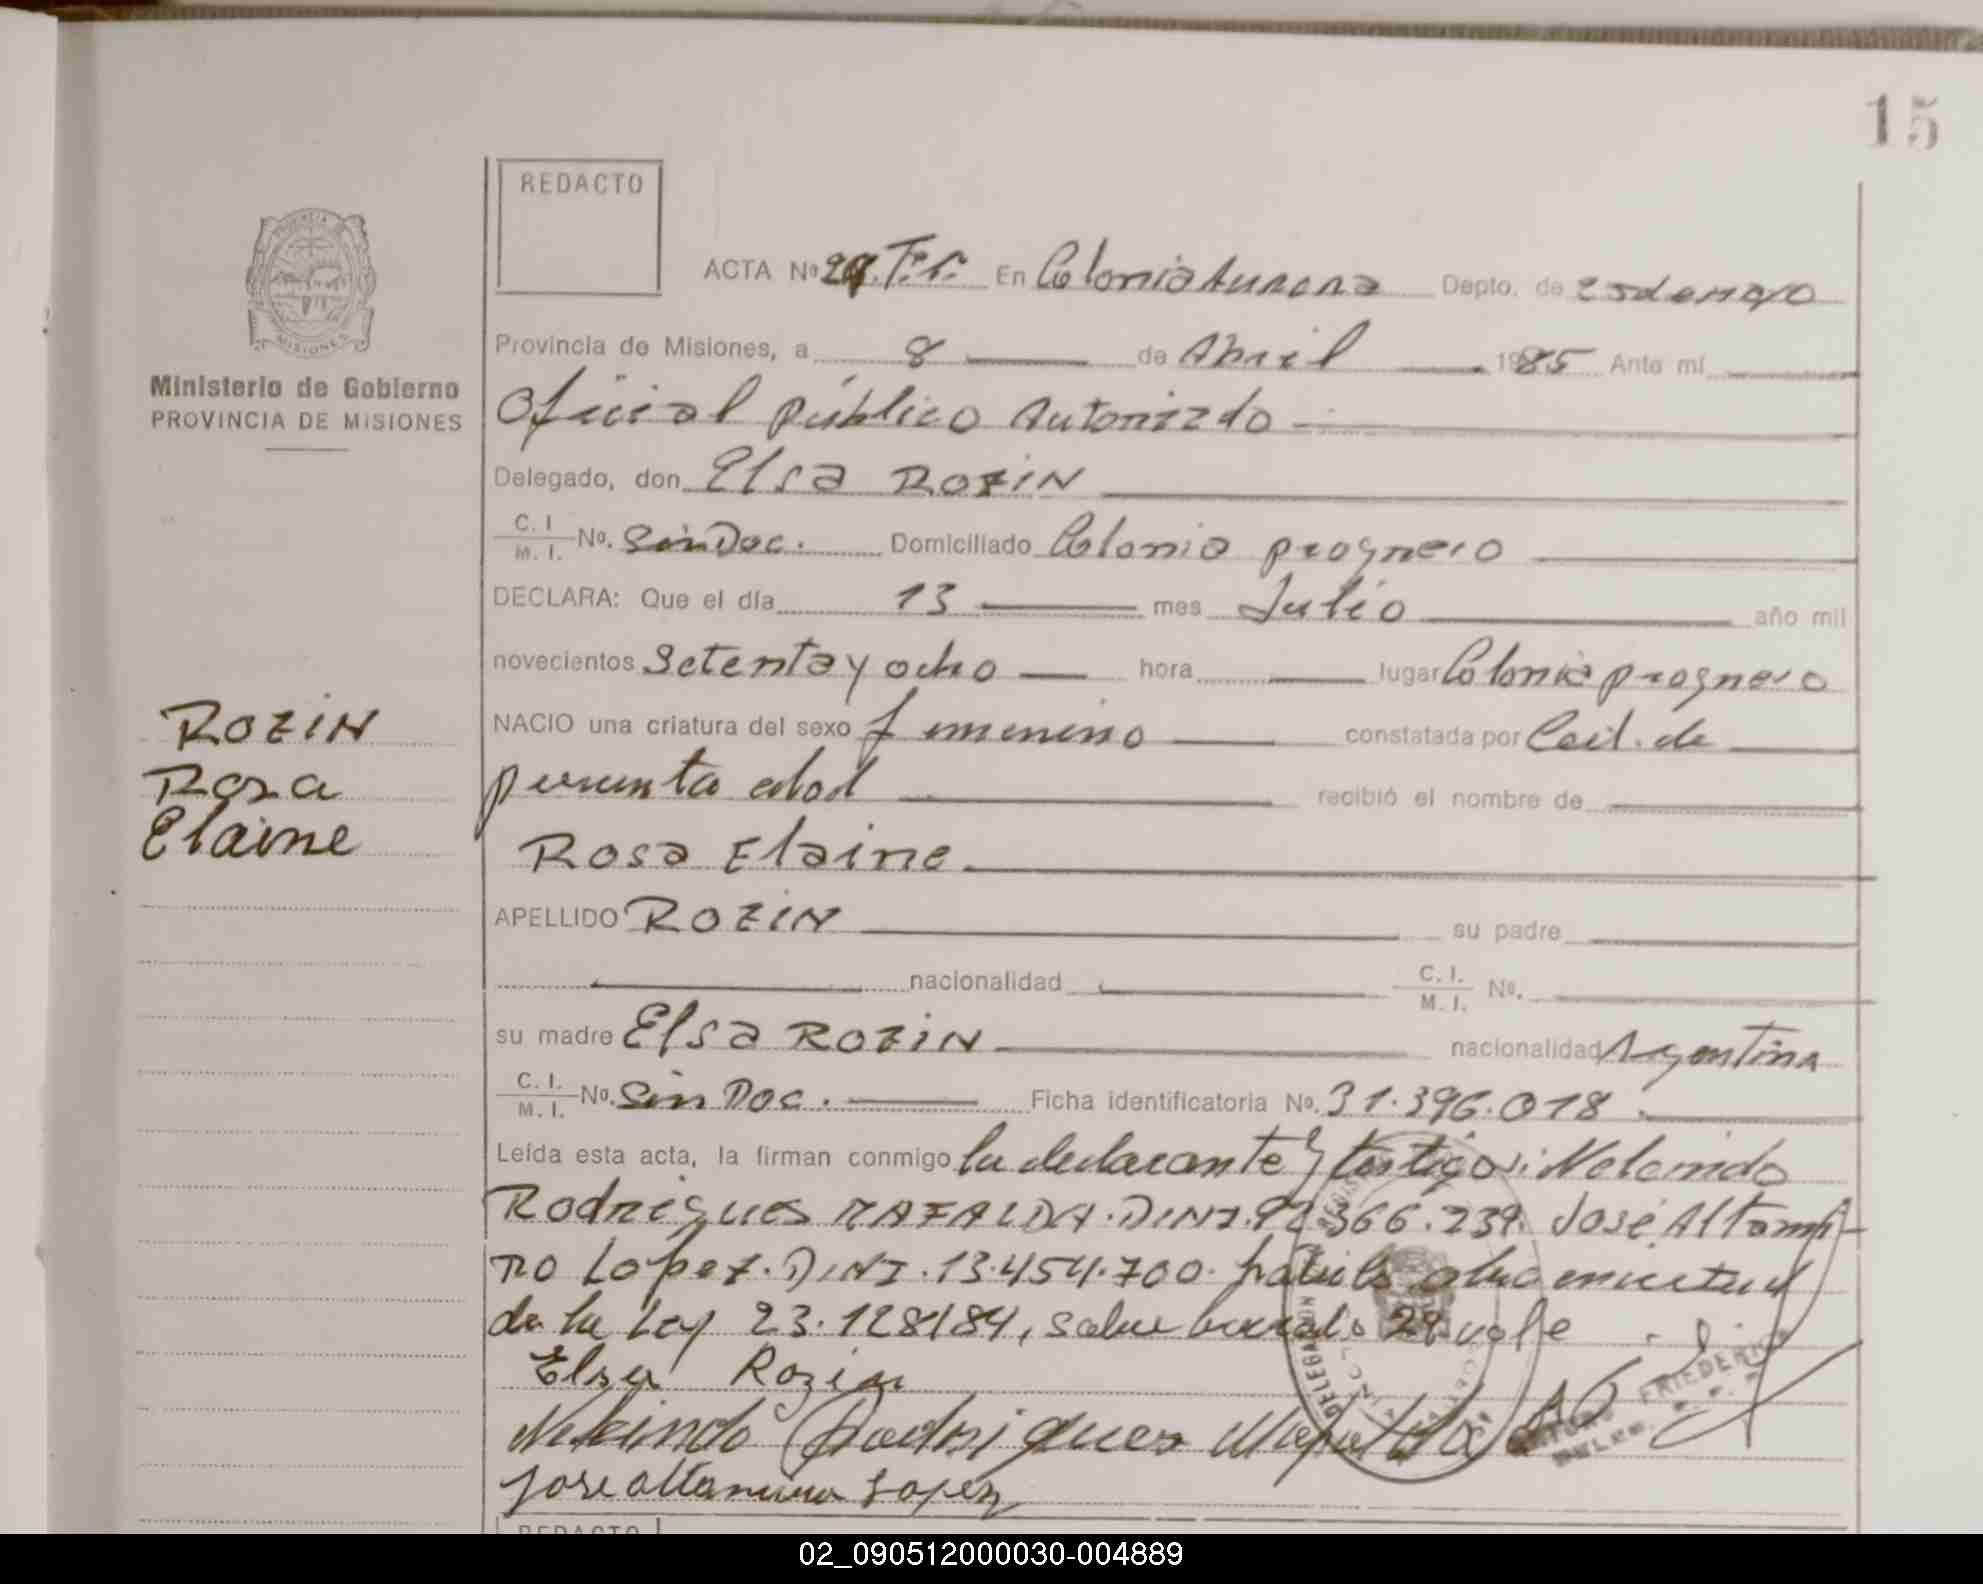 15
REDACTO
ACTA Nº 29. En Colonia Aurora Depto. de 25 de Mayo
Provincia de Misiones, a 8 de Abril 1985 Ante mí
PROVINCIA DE MISIONES
Ministerio de Gobierno
PROVINCIA DE MISIONES
Oficial público Autorizado
Delegado, don Elsa ROZIN
C. I. M. I. No. Sin Doc. Domiciliado Colonia progreso
DECLARA: Que el día 13 mes Julio año mil
novecientos Setenta y ocho hora lugar Colonia progreso
ROZIN
NACIO una criatura del sexo femenino constatada por Cert. de
Rosa
presunta edad recibió el nombre de
Elaine
Rosa Elaine
APELLIDO ROZIN su padre
nacionalidad C. I. M. I. No.
su madre Elsa ROZIN nacionalidad Argentina
C. I. M. I. No. Sin Doc. Ficha identificatoria No. 31.396.018.
Leída esta acta, la firman conmigo la declarante y testigos: Nelcindo
Rodrigues MAFALDA. D.N.I. 92.366.239. José Altami-
RO Lopez. D.N.I. 13.454.700. labrado en virtud
de la Ley 23.128/84, sobre borrado 29 vale
Elsa Rozin
Nelcindo Rodrigues Mafalda
Jose altamiro Lopez
DELEGACIÓN
FRIEDERICH
REDACTO
02_090512000030-004889